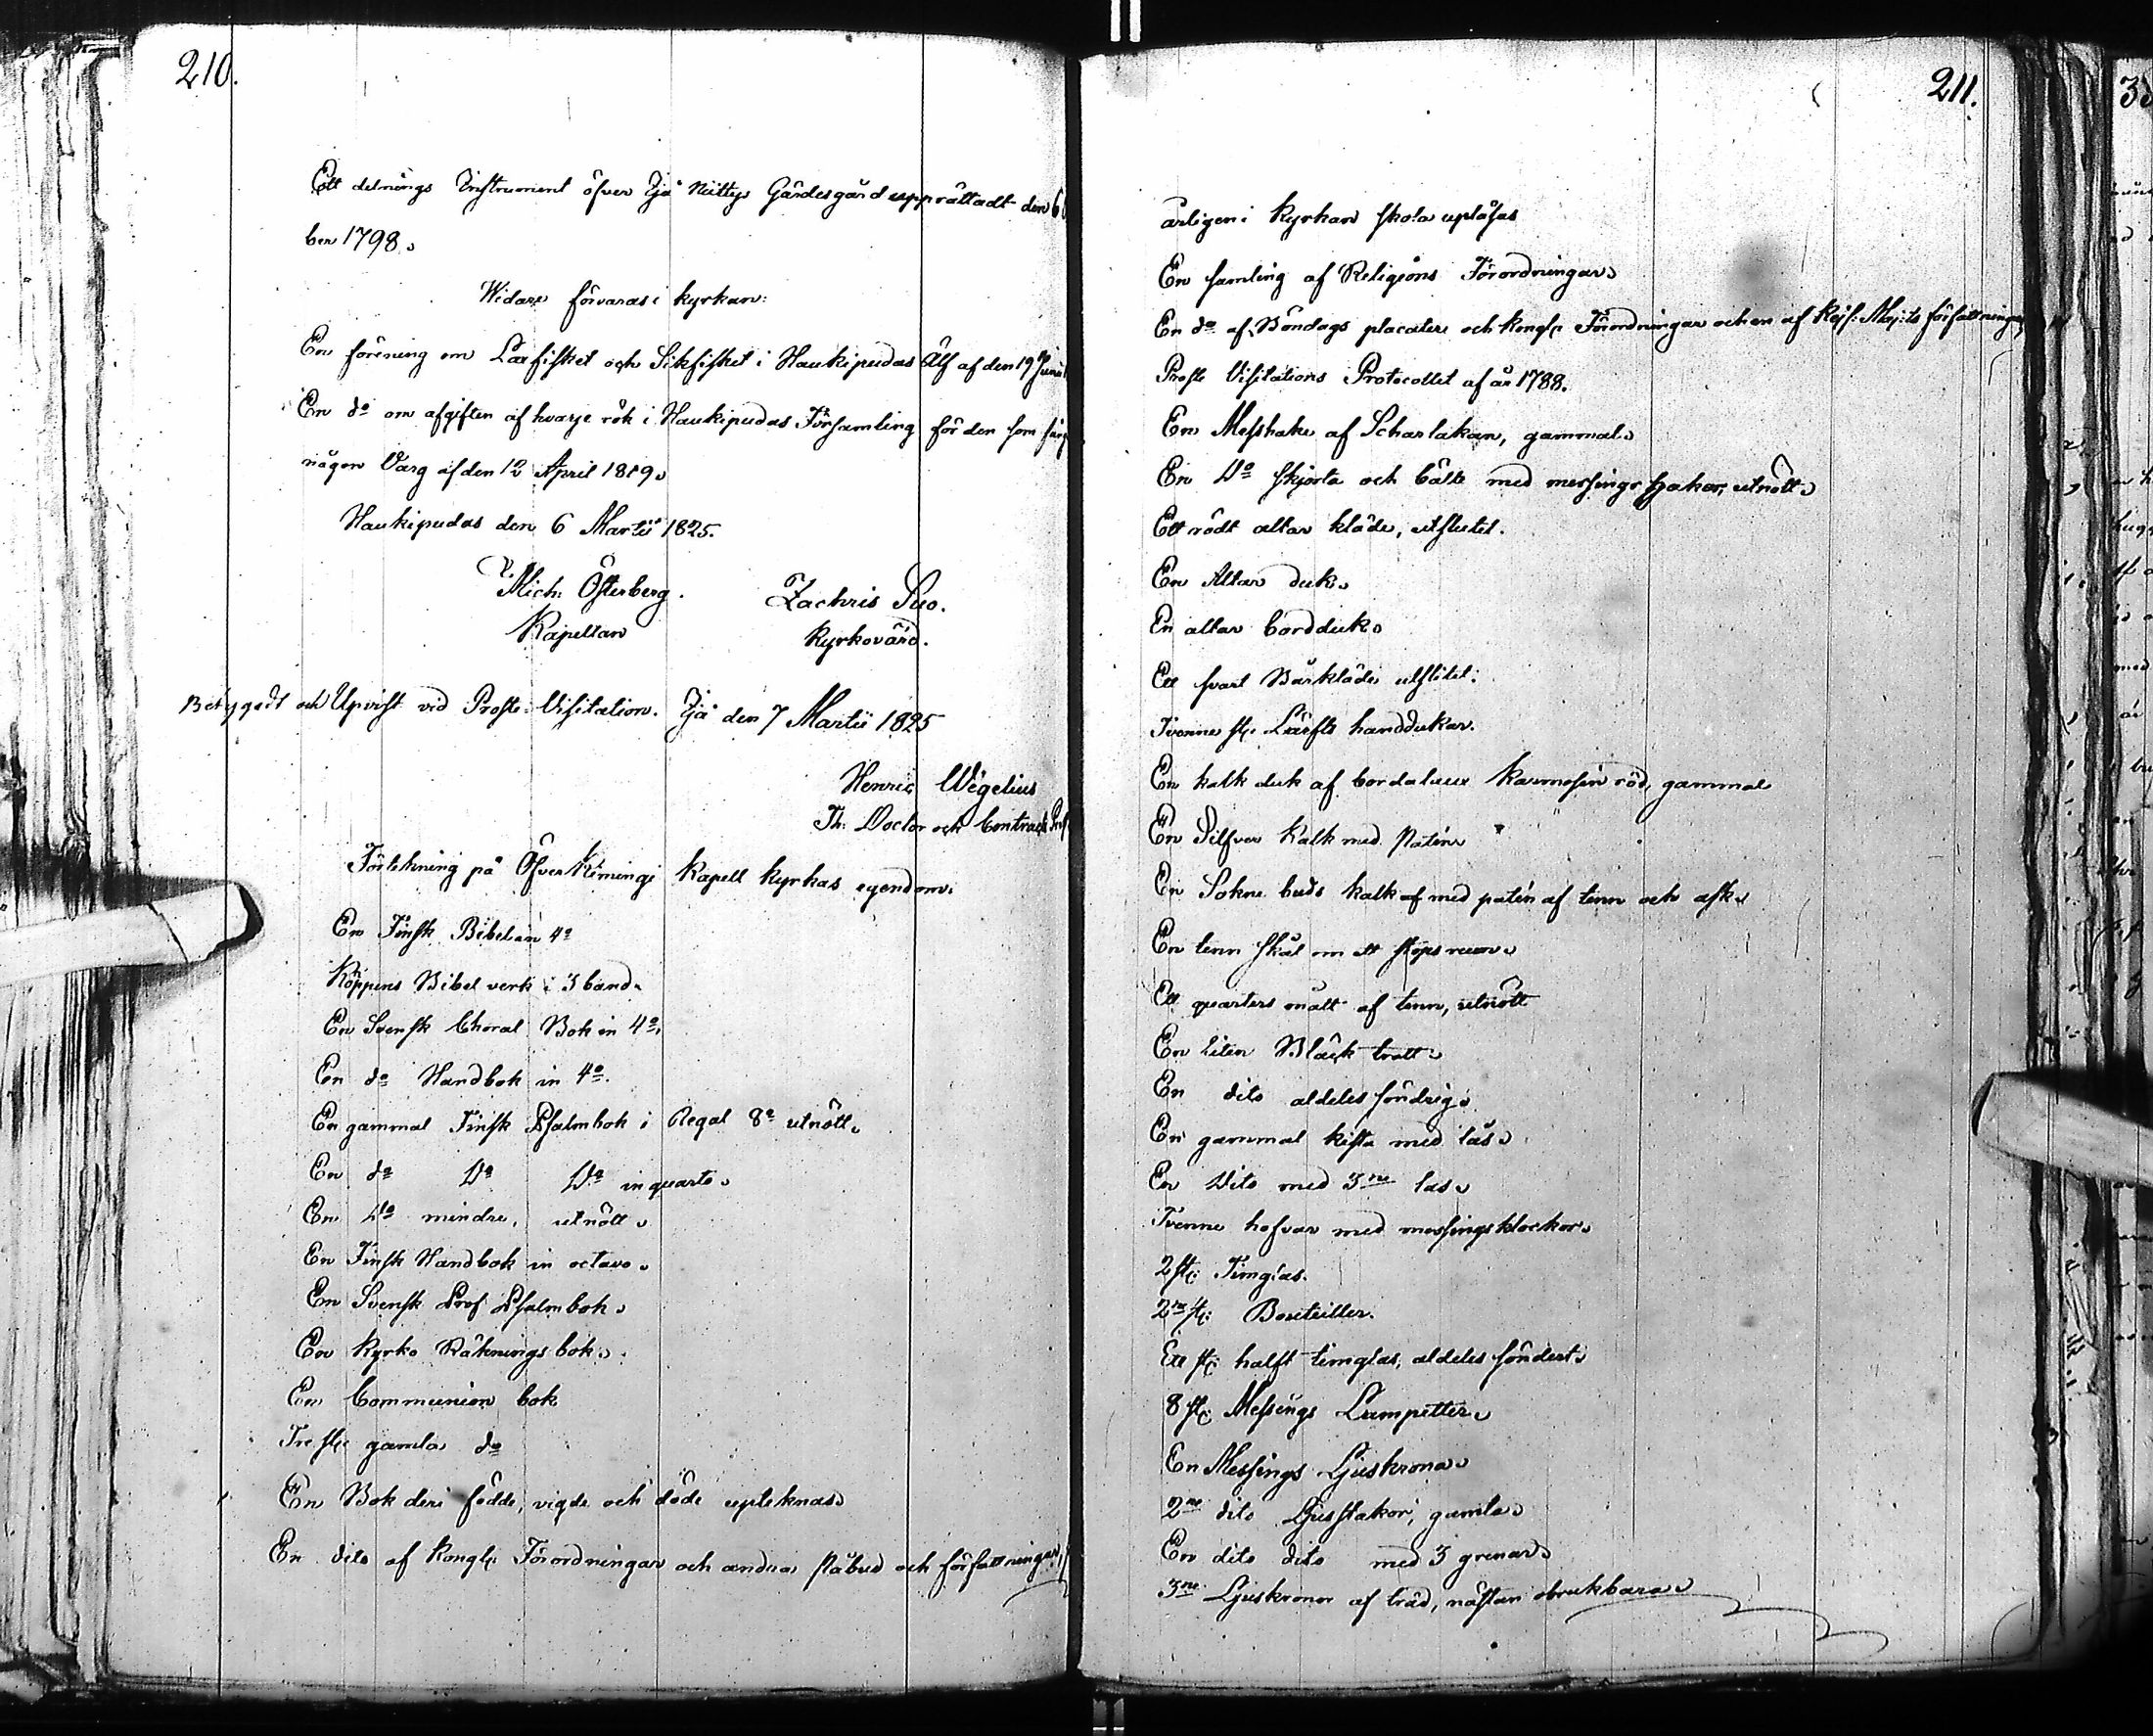 210.
Ett delnings Instrument öfver Ijå Niittys Gärdesgård upprättadt den 6
ber 1798.
Widare förvaras i kyrkan:
En förening om Laxfisket och Sikfisket i Haukipudas Älf af den 19 Junii
En do om afgiften af hvarje rök i Haukipudas Församling för den som
någon Varg af den 12 April 1819.
Haukipudas den 6 Martii 1825.
Mich: Österberg. Zachris Suo.
Kapellan Kyrkovärd.
Betygadt och Upvist vid Proste-Visitation. Ijå den 7 Martii 1825
Henric Wegelius
Th: Doctor och Contracts
Förtekning på Öfver Kiminge Kapell kyrkas egendom.
En Finsk Bibel in 4o
Köppens Bibel verk i 3 band.
En Svensk Choral Bok in 4o.
En do Handbok in 4o.
En gammal Finsk Psalmbok i Regal 8o utnött.
En do Do Do in quarto.
En Do mindre, utnött.
En Finsk Handbok in octavo.
En Svensk Prof Psalmbok.
En Kyrko Räknings bok.
En Communion bok
Tre st: gamla do
En Bok deri födde, vigde och döde upteknas.
En dito af Kongl: Förordningar och andra påbud och författningar,
211.
årligen i Kyrkan skola upläsas
En samling af Religions Förordningar.
En do af Böndags placater och Kongl: Förordningar och en af Kejs: Maj:ts författningar
Proste Visitations Protocollet af år 1788.
En Messhake af Scharlakan, gammal.
En Do skjorta och bälte med messings hakar, utnött.
Ett rödt altar kläde, utslitet.
En Altar duk.
En altar bordduk.
Ett svart Bårkläde utslitet.
Tvenne st: Lärfts handdukar.
En kalk duk af bordaluer Karmosin röd, gammal
En Silfver Kalk med Patén
En Sokne buds kalk af med patén af tenn och ask.
En tenn skål om ett stops rum.
Ett quarters mått af tenn, utnött
En liten Bläck tratt.
En dito aldeles söndrig.
En gammal kista med lås.
En Dito med 3ne lås.
Tvenne hofvar med messings klockor.
2 st: Timglas.
2ne st: Bouteiller.
Ett st: halft timglas, aldeles söndert.
8 st: Messings Lampetter.
En Messings Ljuskrona.
2ne dito Ljusstakar, gamla.
En dito dito med 3 grenar.
3ne Ljuskronor af träd, nästan obrukbara.